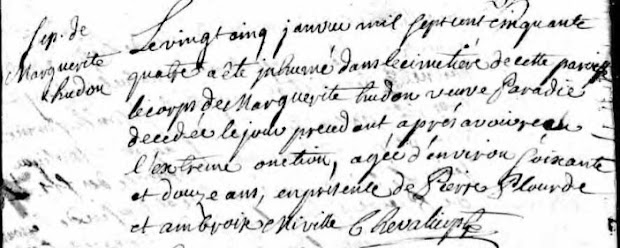 Sep. de
Marguerite
hudon
Le vingt cinq janvier mil sept cent cinquante
quatre a été inhumé dans le cimetiére de cette paroisse
le corps de Marguerite hudon veuve Paradie
decedée le jour precedant aprés avoir receu
l'extreme onction, agée d'environ soixante
et douze ans, en presence de Pierre Plourde
et ambroise Miville Chevalier ptre